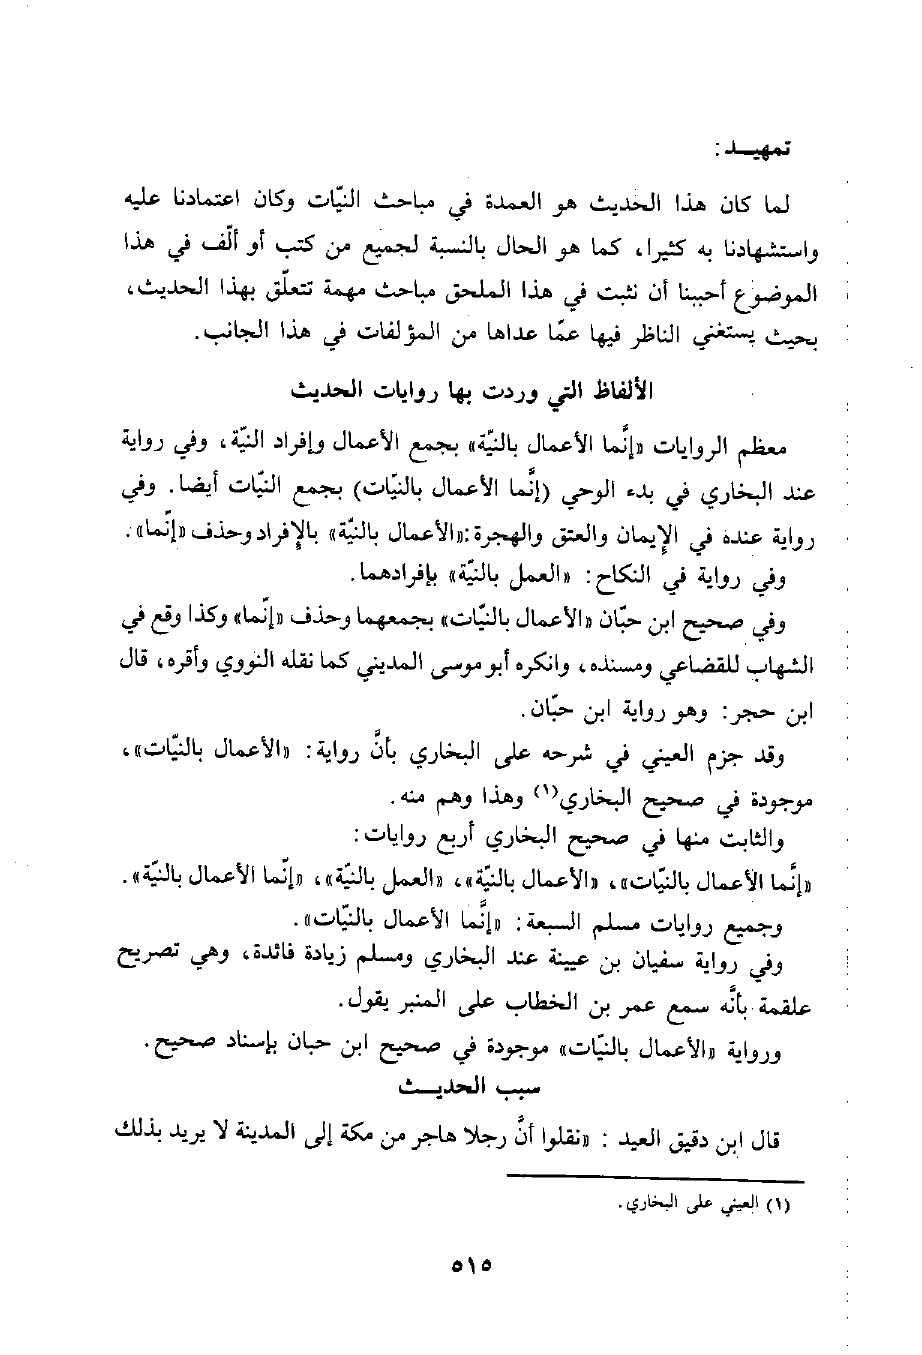 تمهيـد :
لما كان هذا الحديث هو العمدة في مباحث النيّات وكان اعتمادنا عليه
واستشهادنا به كثيرا، كما هو الحال بالنسبة لجميع من كتب أو ألّف في هذا
الموضوع أحببنا أن نثبت في هذا الملحق مباحث مهمة تتعلّق بهذا الحديث،
بحيث يستغني الناظر فيها عمّا عداها من المؤلفات في هذا الجانب.
الألفاظ التي وردت بها روايات الحديث
معظم الروايات «إنَّما الأعمال بالنيّة» بجمع الأعمال وإفراد النيّة، وفي رواية
عند البخاري في بدء الوحي (إنَّما الأعمال بالنيّات) بجمع النيّات أيضا. وفي
رواية عنده في الإيمان والعتق والهجرة :«الأعمال بالنيّة» بالإفراد وحذف «إنّما».
وفي رواية في النكاح : «العمل بالنيّة» بإفرادهما.
وفي صحيح ابن حبّان «الأعمال بالنيّات» بجمعهما وحذف «إنّما» وكذا وقع في
الشهاب للقضاعي ومسنده، وانكره أبو موسى المديني كما نقله النووي وأقره، قال
ابن حجر: وهو رواية ابن حبّان.
وقد جزم العيني في شرحه على البخاري بأنَّ رواية : «الأعمال بالنيّات»،
موجودة في صحيح البخاري(١) وهذا وهم منه.
والثابت منها في صحيح البخاري أربع روايات:
«إنَّما الأعمال بالنيّات»، «الأعمال بالنيّة»، «العمل بالنيّة»، «إنّما الأعمال بالنيّة».
وجميع روايات مسلم السبعة : «إنَّما الأعمال بالنيّات».
وفي رواية سفيان بن عيينة عند البخاري ومسلم زيادة فائدة، وهي تصريح
علقمة بأنَّه سمع عمر بن الخطاب على المنبر يقول.
ورواية «الأعمال بالنيّات» موجودة في صحيح ابن حبان بإسناد صحيح.
سبب الحديـث
قال ابن دقيق العيد : «نقلوا أنَّ رجلا هاجر من مكة إلى المدينة لا يريد بذلك
(١) العيني على البخاري.
٥١٥